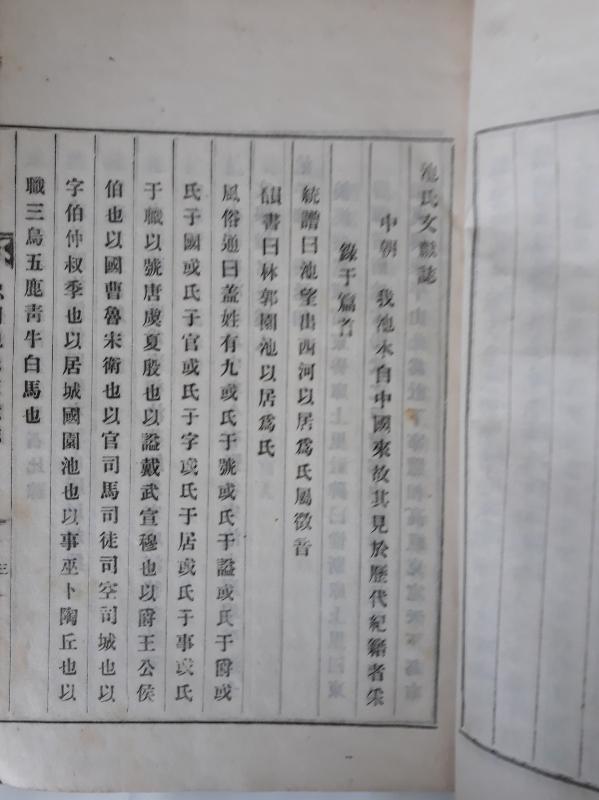 池氏文獻誌
中朝　我池本自中國來故其見於歷代紀籍者采
錄于篇首
統譜曰池望出西河以居爲氏屬徵音
韻書曰林郭園池以居爲氏
風俗通曰蓋姓有九或氏于號或氏于謚或氏于爵或
氏于國或氏于官或氏于字或氏于居或氏于事或氏
于職以號唐虞夏殷也以謚戴武宣穆也以爵王公侯
伯也以國曹魯宋衛也以官司馬司徒司空司城也以
字伯仲叔季也以居城國園池也以事巫卜陶丘也以
職三烏五鹿靑牛白馬也